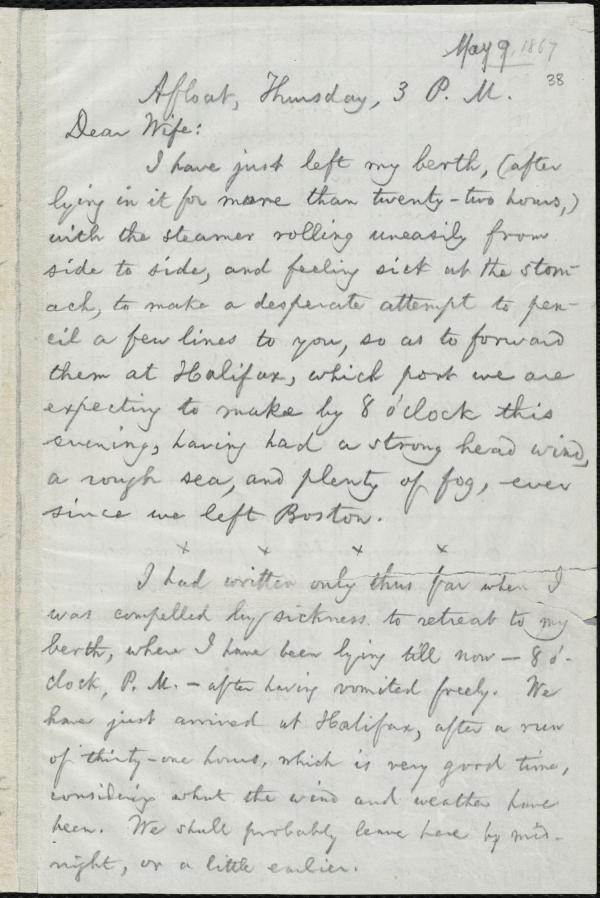 May 9, 1867
38
Afloat, Thursday, 3 P. M.
Dear Wife:
I have just left my berth, (after
lying in it for more than twenty-two hours,)
with the steamer rolling uneasily from
side to side, and feeling sick at the stom-
ach, to make a desperate attempt to pen-
cil a few lines to you, so as to forward
them at Halifax, which port we are
expecting to make by 8 o'clock this
evening, having had a strong head wind,
a rough sea, and plenty of fog, ever
since we left Boston.
x x x x
I had written only thus far when I
was compelled by sickness to retreat to my
berth, where I have been lying till now — 8 o'-
clock, P. M. — after having vomited freely. We
have just arrived at Halifax, after a run
of thirty-one hours, which is very good time,
considering what the wind and weather have
been. We shall probably leave here by mid-
night, or a little earlier.